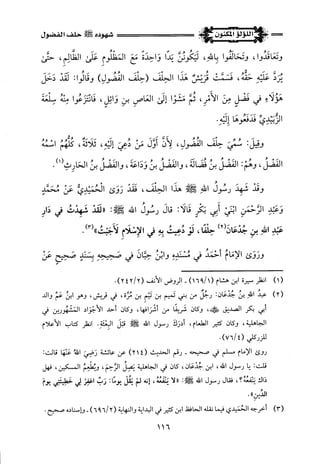 اللؤلؤ المكنون
شهوده ﷺ حلف الفضول
وتعاقدوا، وتحالفوا بالله، ليكونن يدا واحدة مع المظلوم على الظالم، حتى
يرد عليه حقه، فسمت قريش هذا الحلف (حلف الفضول) وقالوا: لقد دخل
هؤلاء في فضل من الأمر، ثم مشوا إلى العاص بن وائل، فانتزعوا منه سلعة
الزبيدي فدفعوها إليه.
وقيل: سمي حلف الفضول، لأن أول من دعي إليه، ثلاثة، كلهم اسمه
الفضل، وهم: الفضل بن فضالة، والفضل بن وداعة، والفضل بن الحارث(١).
وقد شهد رسول الله ﷺ هذا الحلف، فقد روى الحميدي عن محمد
وعبد الرحمن ابني أبي بكر قالا: قال رسول الله ﷺ: «لقد شهدت في دار
عبد الله بن جدعان(٢) حلفا، لو دعيت به في الإسلام لأجبت»(٣).
وروى الإمام أحمد في مسنده وابن حبان في صحيحه بسند صحيح عن
(١) انظر سيرة ابن هشام (١٦٩/١) - الروض الأنف (٢٤٢/٢).
(٢) عبد الله بن جدعان: رجل من بني تميم بن تيم بن مرة، في قريش، وهو ابن عم والد
أبي بكر الصديق، وكان شريفا من أشرافها، وكان أحد الأجواد المشهورين في
الجاهلية، وكان كثير الطعام، أدرك رسول الله ﷺ قبل البعثة. انظر كتاب الأعلام
للزركلي (٧٦/٤).
روى الإمام مسلم في صحيحه - رقم الحديث (٢١٤) عن عائشة رضي الله عنها قالت:
قلت: يا رسول الله، ابن جدعان، كان في الجاهلية يصل الرحم، ويطعم المسكين، فهل
ذاك ينفعه؟، فقال رسول الله ﷺ: «لا ينفعه، إنه لم يقل يوما: رب اغفر لي خطيئتي يوم
الدين».
(٣) أخرجه الحميدي فيما نقله الحافظ ابن كثير في البداية والنهاية (٦٩٦/٢) - وإسناده صحيح.
١١٦